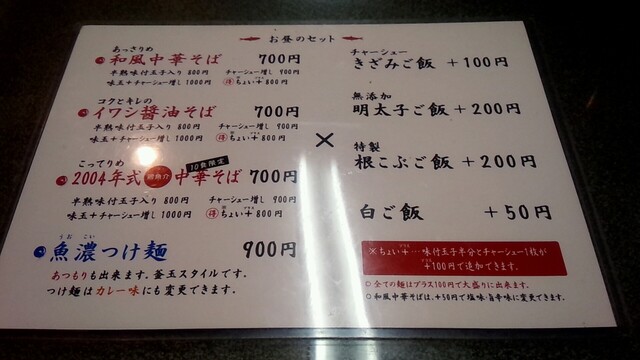 お昼のセット
あっさりめ
和風中華そば 700円
半熟味付玉子入り 800円 チャーシュー増し 900円
味玉+チャーシュー増し 1000円 得 ちょい+ 800円
コクとキレの
イワシ醤油そば 700円
半熟味付玉子入り 800円 チャーシュー増し 900円
味玉+チャーシュー増し 1000円 得 ちょい+ 800円
こってりめ
10食限定
2004年式 中華そば 700円
半熟味付玉子入り 800円 チャーシュー増し 900円
味玉+チャーシュー増し 1000円 得 ちょい+ 800円
うお こい
魚濃つけ麺 900円
あつもりも出来ます。釜玉スタイルです。
つけ麺はカレー味にも変更できます。
×
チャーシュー
きざみご飯 +100円
無添加
明太子ご飯 +200円
特製
根こぶご飯 +200円
白ご飯 +50円
※ちょい+…味付玉子半分とチャーシュー1枚が
+100円で追加できます。
○全ての麺はプラス100円で大盛りに出来ます。
○和風中華そばは、+50円で塩味・旨辛味に変更できます。